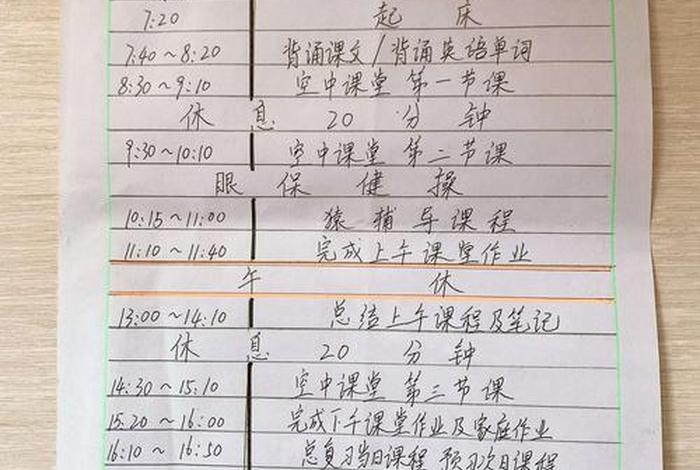 7:20 起床
7:40~8:20 背诵课文/背诵英语单词
8:30~9:10 空中课堂 第一节课
休息20分钟
9:30~10:10 空中课堂 第二节课
眼保健操
10:15~11:00 猿辅导课程
11:10~11:40 完成上午课堂作业
午休
13:00~14:10 总结上午课程及笔记
休息20分钟
14:30~15:10 空中课堂 第三节课
15:20~16:00 完成下午课堂作业及家庭作业
16:10~16:50 总复习当日课程 预习次日课程